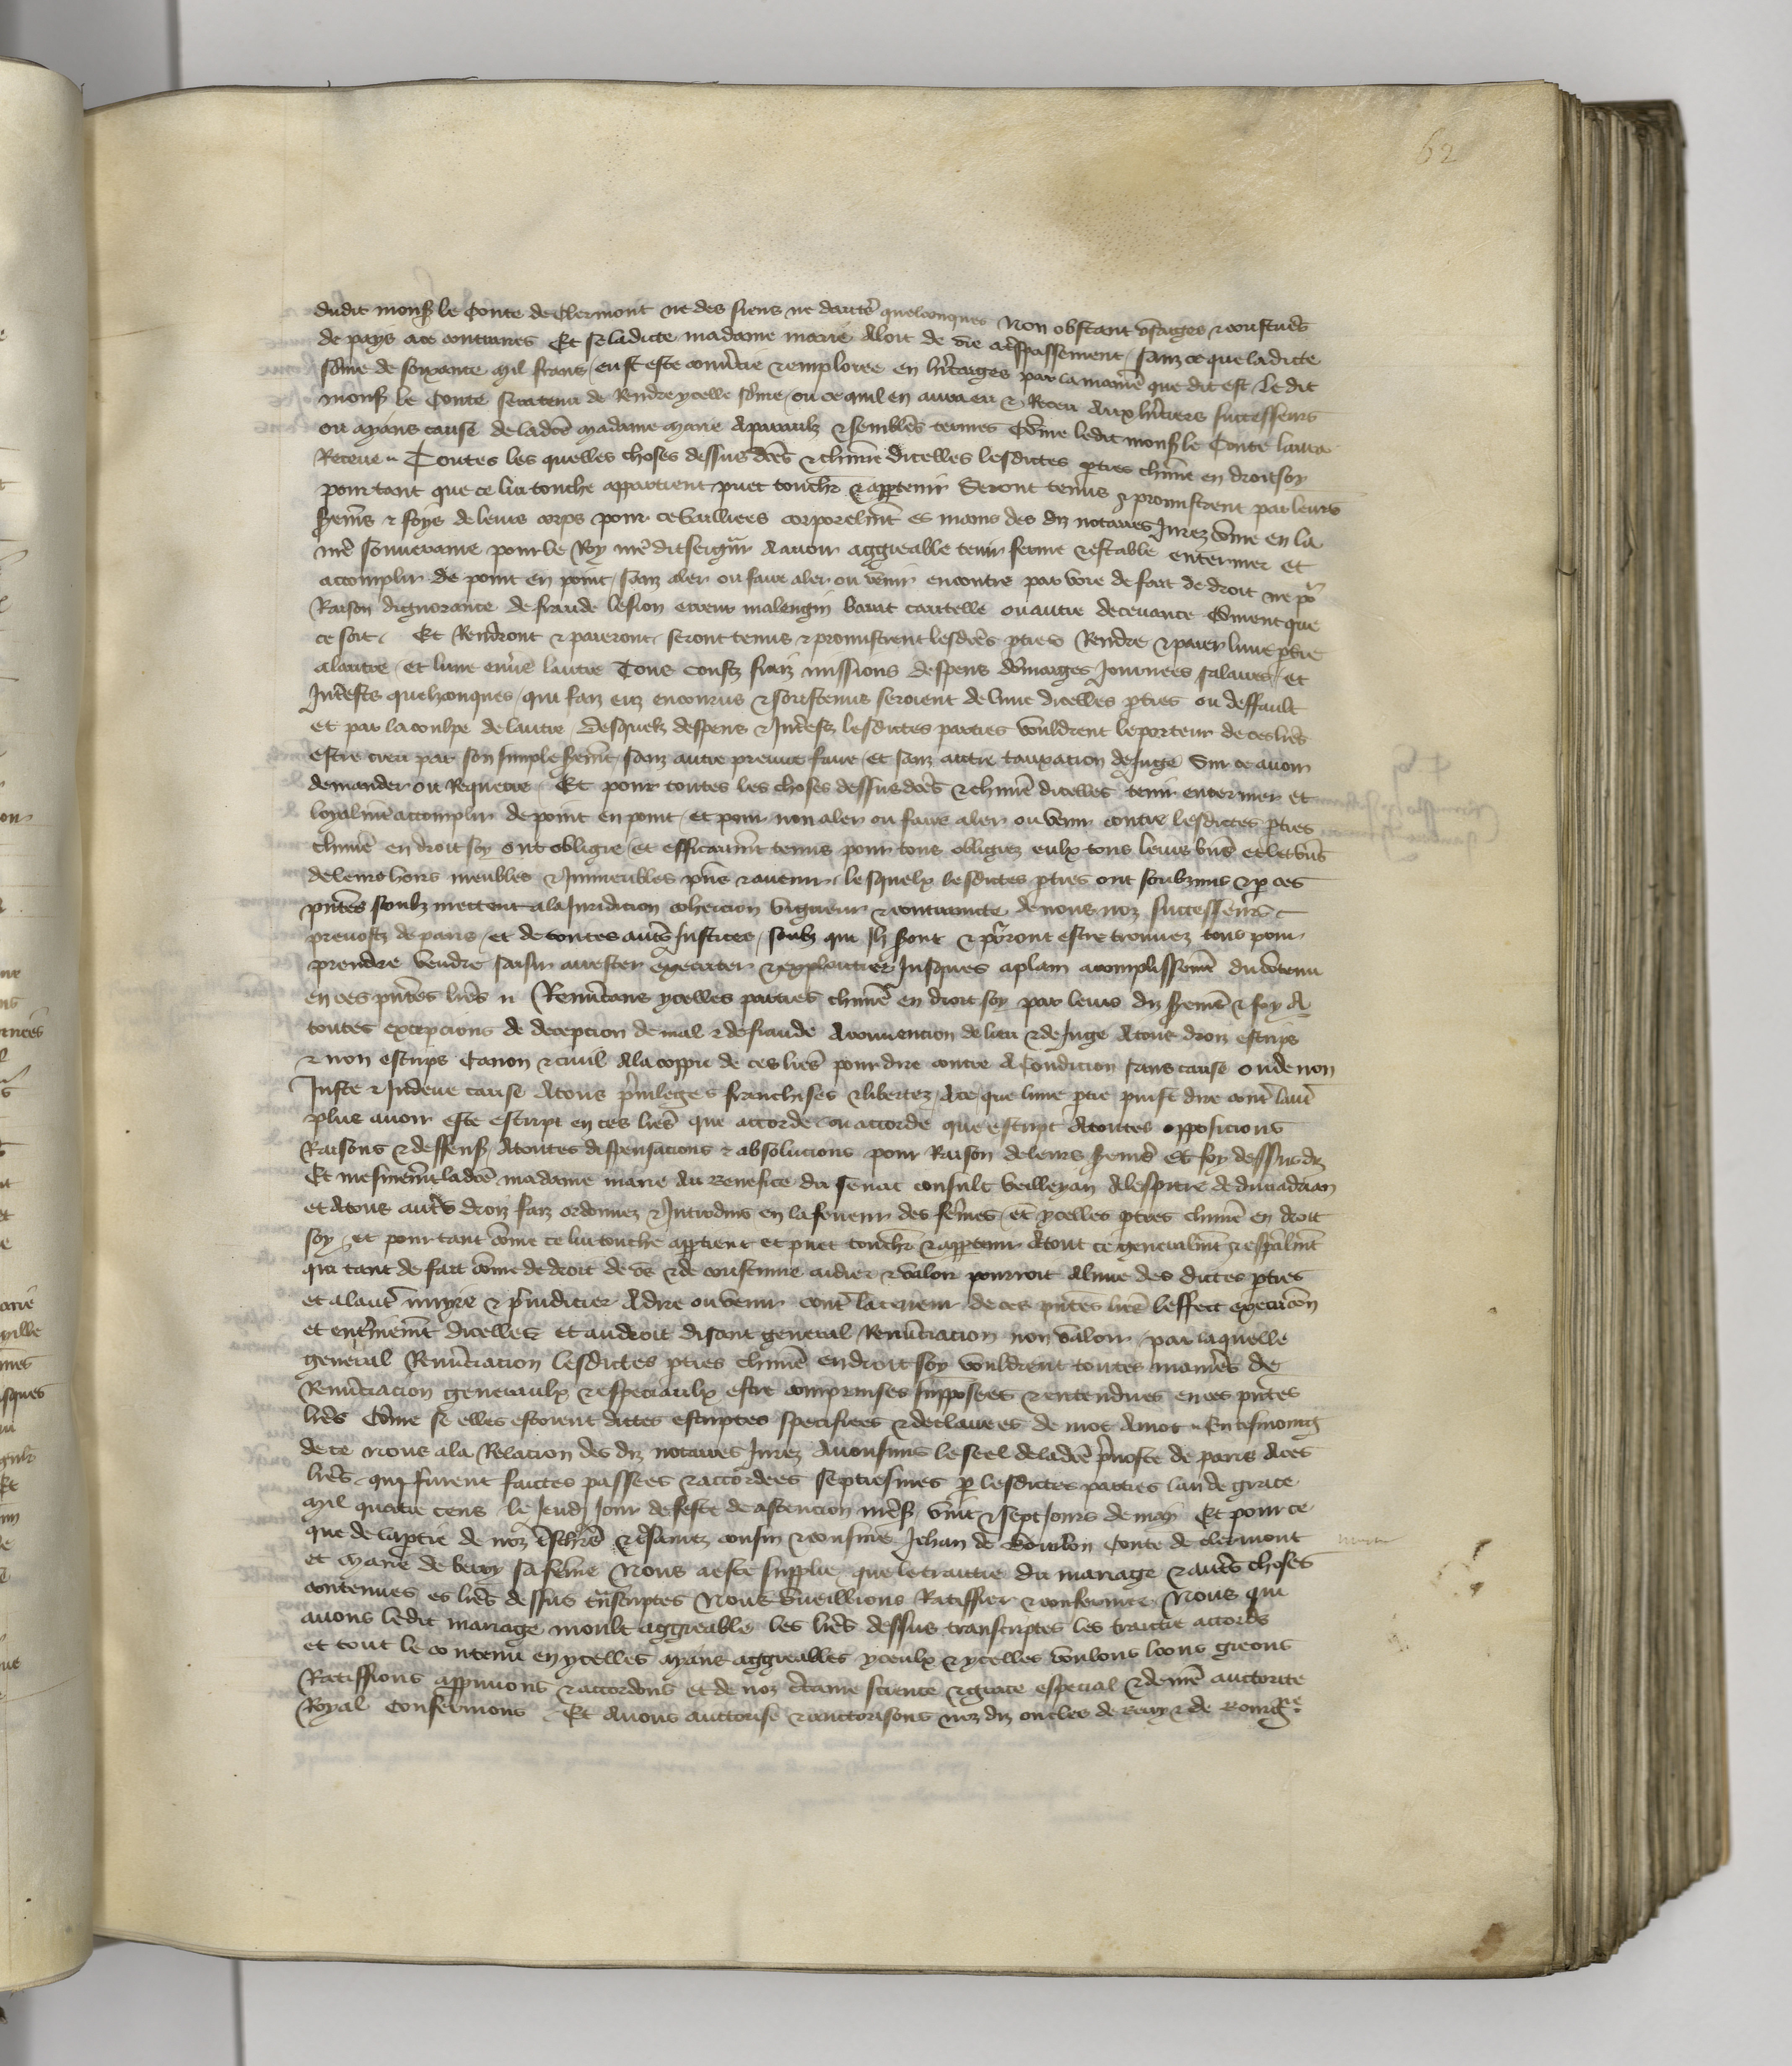 62
dudit mons le Conte de Clermont ne des siens ne dautres quelconques Non obstant usages & coustumes
de pays ace contraires Et se ladicte madame marie Aloit de vie a trespassement sanz ce que ladicte
som̄e de soixante mil frans eust este convertie & emploiee en heritages par la maniere que dit est Ledit
mons le Conte sera tenu de Rendre ycelle som̄e ou ce quil en auera eu & Receu Aux heritiers successeurs
ou ayans cause de ladcē madame marie Apareulx & semblēs termes Com̄e ledit mons le Conte laura
Receue Toutes les quelles choses dessus dcēs & chūne dicelles lesdictes pties chūne en droit soy
pour tant que ce lui touche appartient puet touchr & apptenir Seront tenus & promistrent par leurs
sermēs & foys de leurs corps pour ce bailliees corporelmēt es mains des diz notaires Jurez com̄e en la
mē souueraine pour le Roy mē dit seigneur Aauoir aggreable tenir ferme & estable enteriner et
accomplir de point en point sanz aler ou faire aler ou venir encontre par voie de fait de droit ne pour
Raison dignorance de fraude lesion erreur malengin barat cautelle ou autre deceuance Com̄ent que
ce soit Et Rendront & paieront seront tenus & promistrent lesdcēs pties Rendre & paier lune ptie
alautre et lune enūs lautre Tous coustz fraiz missions despens dom̄ages Journees salaires et
Interests quelzconques qui faiz euz encourus & soustenus seroient de lune dicelles pties ou deffault
et par la coulpe de lautre Desquelz despens & Interestz lesdictes parties vouldrent le porteur de ces lrēs
estre creu par son simple sermēt sanz autre preuue faire et sanz autre tauxacion de Juge Sur ce auoir
demander ou Requerre Et pour toutes les choses dessus dcēs & chūne dicelles tenir enteriner et
loyalmēt accomplir de point en point et pour non aler ou faire aler ou venir contre lesdictes pties
chūne en droit soy ont obligie et efficaumēt tenus pour tous obligiez eulx tous leurs biens et les biens
de leurs hoirs meubles & Immeubles pns & auenir lesquelx lesdictes pties ont soubzmis & p ces
pntēs soubzmettent ala Juridicion cohercion vigueur & contraincte de nous noz successeurs
preuostz de paris et de toutes autrēs Justices soubz qui Ilz sont & pourront estre trouuez tous pour
prendre vendre saisir arrester executer & exploictier Jusques aplain acomplissement du contenu
en ces pntēs lrēs Renūcans ycelles parties chūne en droit soy par leurs diz sermēs & foy A
toutes excepcions de decepcion de mal & de fraude Aconuencion de lieu & de Juge Atous droiz escrips
& non escrips Canon & ciuil Ala coppie de ces lrēs pour dire contre A Condicion sans cause ou de non
Juste & Indeue cause Atous priuileges franchises & libertez Ace que lune ptie puist dire contre lautre
plus auoir este escript en ces lrēs que accorde ou accorde que escript Atoutes opposicions
Raisons & deffenses Atoutes dispensacions & absolucions pour Raison de leurs sermēs Et foy dessus diz
Et mesmemēt ladcē madame marie Au Benefice du senat consult velleyan Alespitre de diuiadrian
et Atous autrēs droiz faiz ordonnez & Introduis en la faueur des femmes et ycelles pties chūne en droit
soy et pour tant com̄e ce lui touche apptient et puet touchr & apptenir Atout ce generalmēt & especialmēt
qui tant de fait com̄e de droit de us & de coustume aidier & valoir pourroit Alune des dictes pties
et alautre nuyre & preiudicier Adire ou venir contre la teneur de ces pntēs lrēs leffect execucion
et enterinemēt dicelles et au droit disant general Renūciacion non valoir par laquelle
general Renūciacion lesdictes pties chūne en droit soy vouldrent toutes manierēs de
Renūciacion generaulx & especiaulx estre comprinses supposees & entendues en ces pntēs
lrēs Com̄e se elles estoient dittes escriptes specifiees & declairees de mot Amot En tesmoing
de ce Nous ala Relacion des diz notaires Jurez Auons mis le seel de ladcē preuoste de paris Aces
lrēs qui furent faictes passees & accordees septiesmes p lesdictes parties lan de grace
mil quatre cens le Jeudi Jour de feste de ascencion nrēs vint & sept Jours de may Et pour ce
que de la ptie de noz treschiers & Amez cousin & cousine Jehan de Bourbon Conte de clermont
et Marie de berry sa femme Nous a este supplie que le traictie du mariage & autrēs choses
contenues es lrēs dessus trnscriptes Nous vueillions Ratiffier & confermer Nous qui
auons ledit mariage moult aggreable les lrēs dessus transcriptes les traictie accords
et tout le contenu en ycelles ayans aggreables yceulx & ycelles voulons loons greons
Ratiffions appruuons & accordons et de noz certaine science & grace especial & de nrē auctorite
Royal Confermons Et Auons auctorise & auctorisons noz diz oncles de berry & de Bourgne